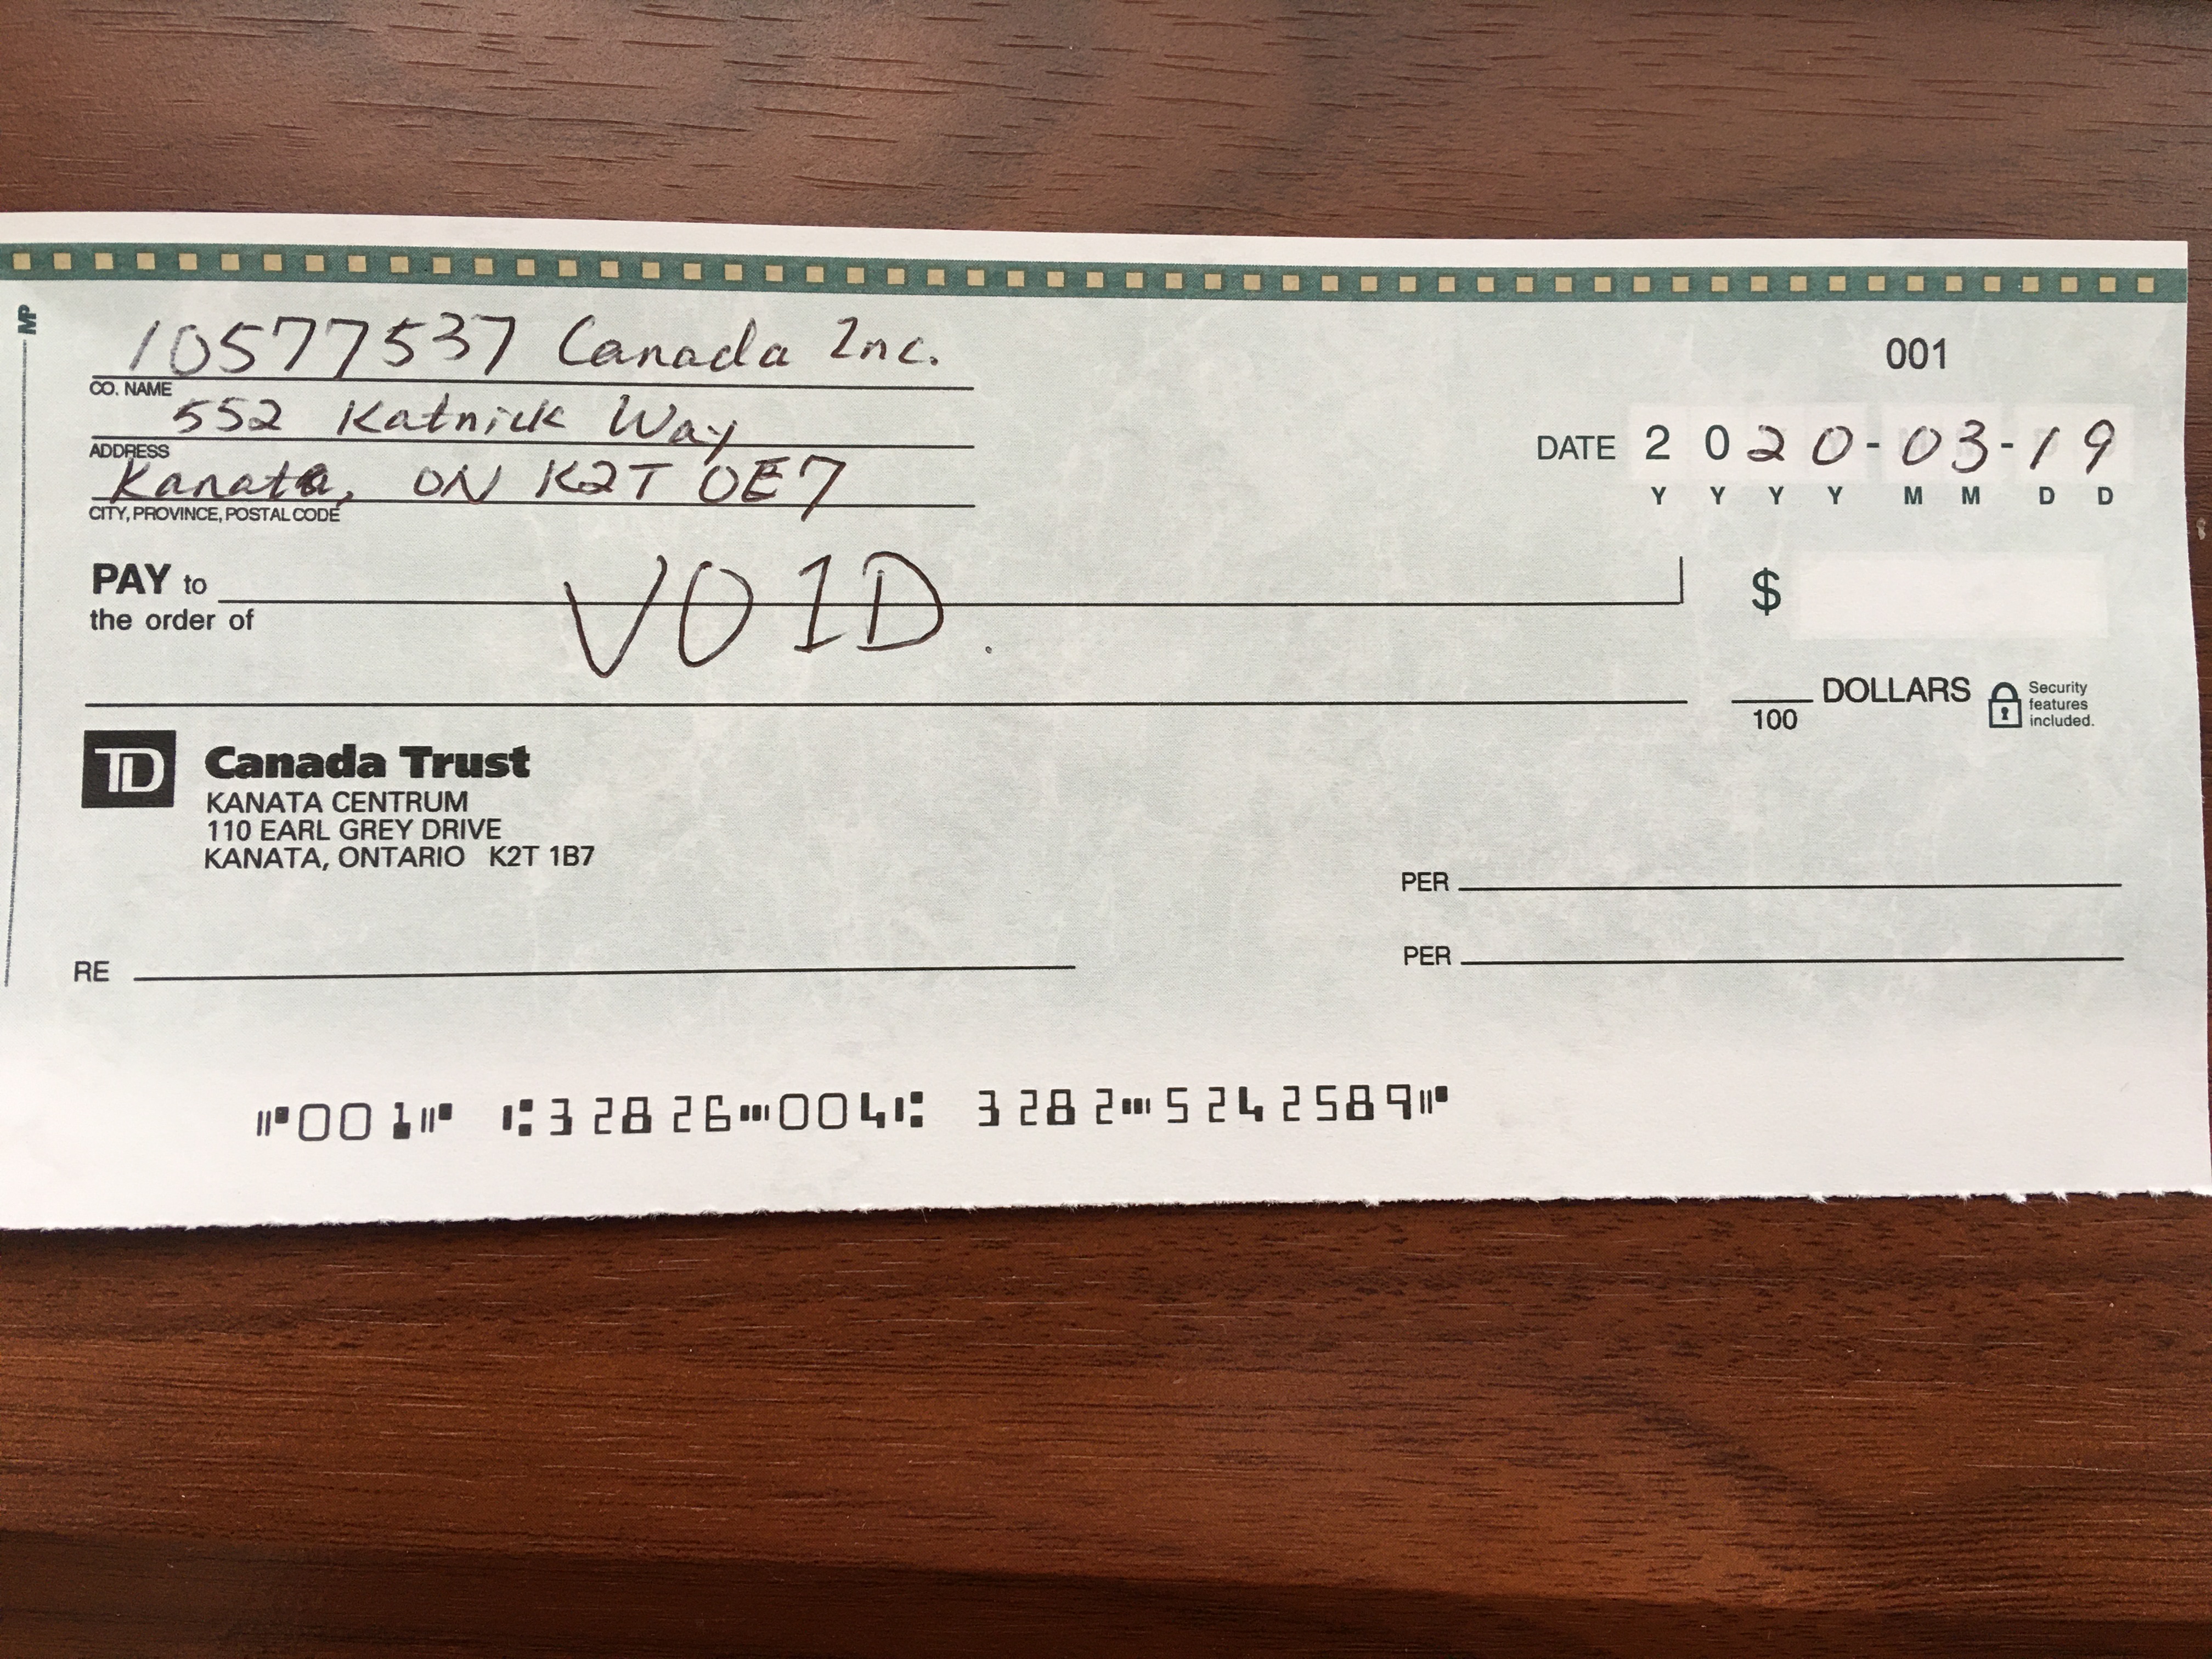 MP
001
10577537 Canada Inc.
CO. NAME
552 Katnick Way
ADDRESS
Kanata, ON K2T 0E7
CITY, PROVINCE, POSTAL CODE
DATE 2020-03-19
Y Y Y Y M M D D
PAY to
the order of
VOID
$
100 DOLLARS
Security
features
included.
TD Canada Trust
KANATA CENTRUM
110 EARL GREY DRIVE
KANATA, ONTARIO K2T 1B7
PER
RE
PER
⑈001⑈ ⑆32826⑉004⑆ 3282⑉5242589⑈